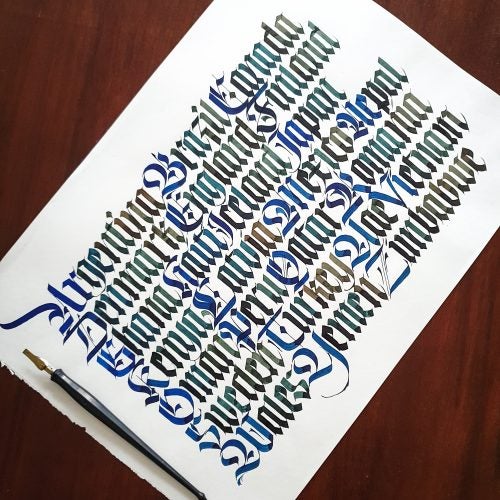 Argentina Brazil Canada
Denmark England Finland
Ghana Haiti Ireland Japan
Kenya Latvia Mexico Nepal
Oman Peru Qatar Romania
Sweden Turkey Uae Vietnam
Wales Yemen Zimbabwe